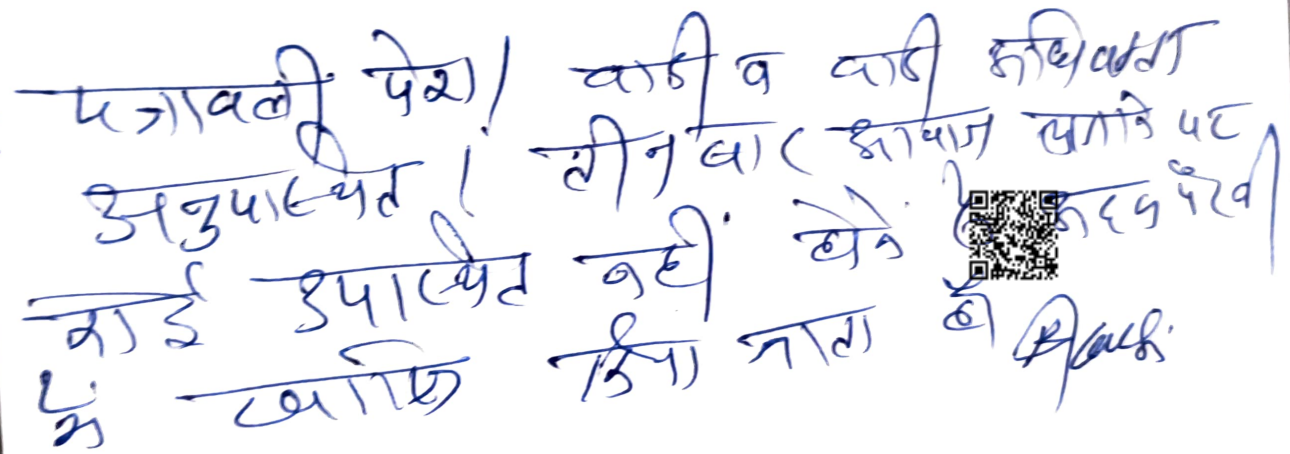 पत्रावली पेश। वादी व वादी अधिवक्ता
अनुपस्थित। तीन बार आवाज लगाने पर
कोई उपस्थित नहीं होने से अदम पैरवी
में खारिज किया जाता है